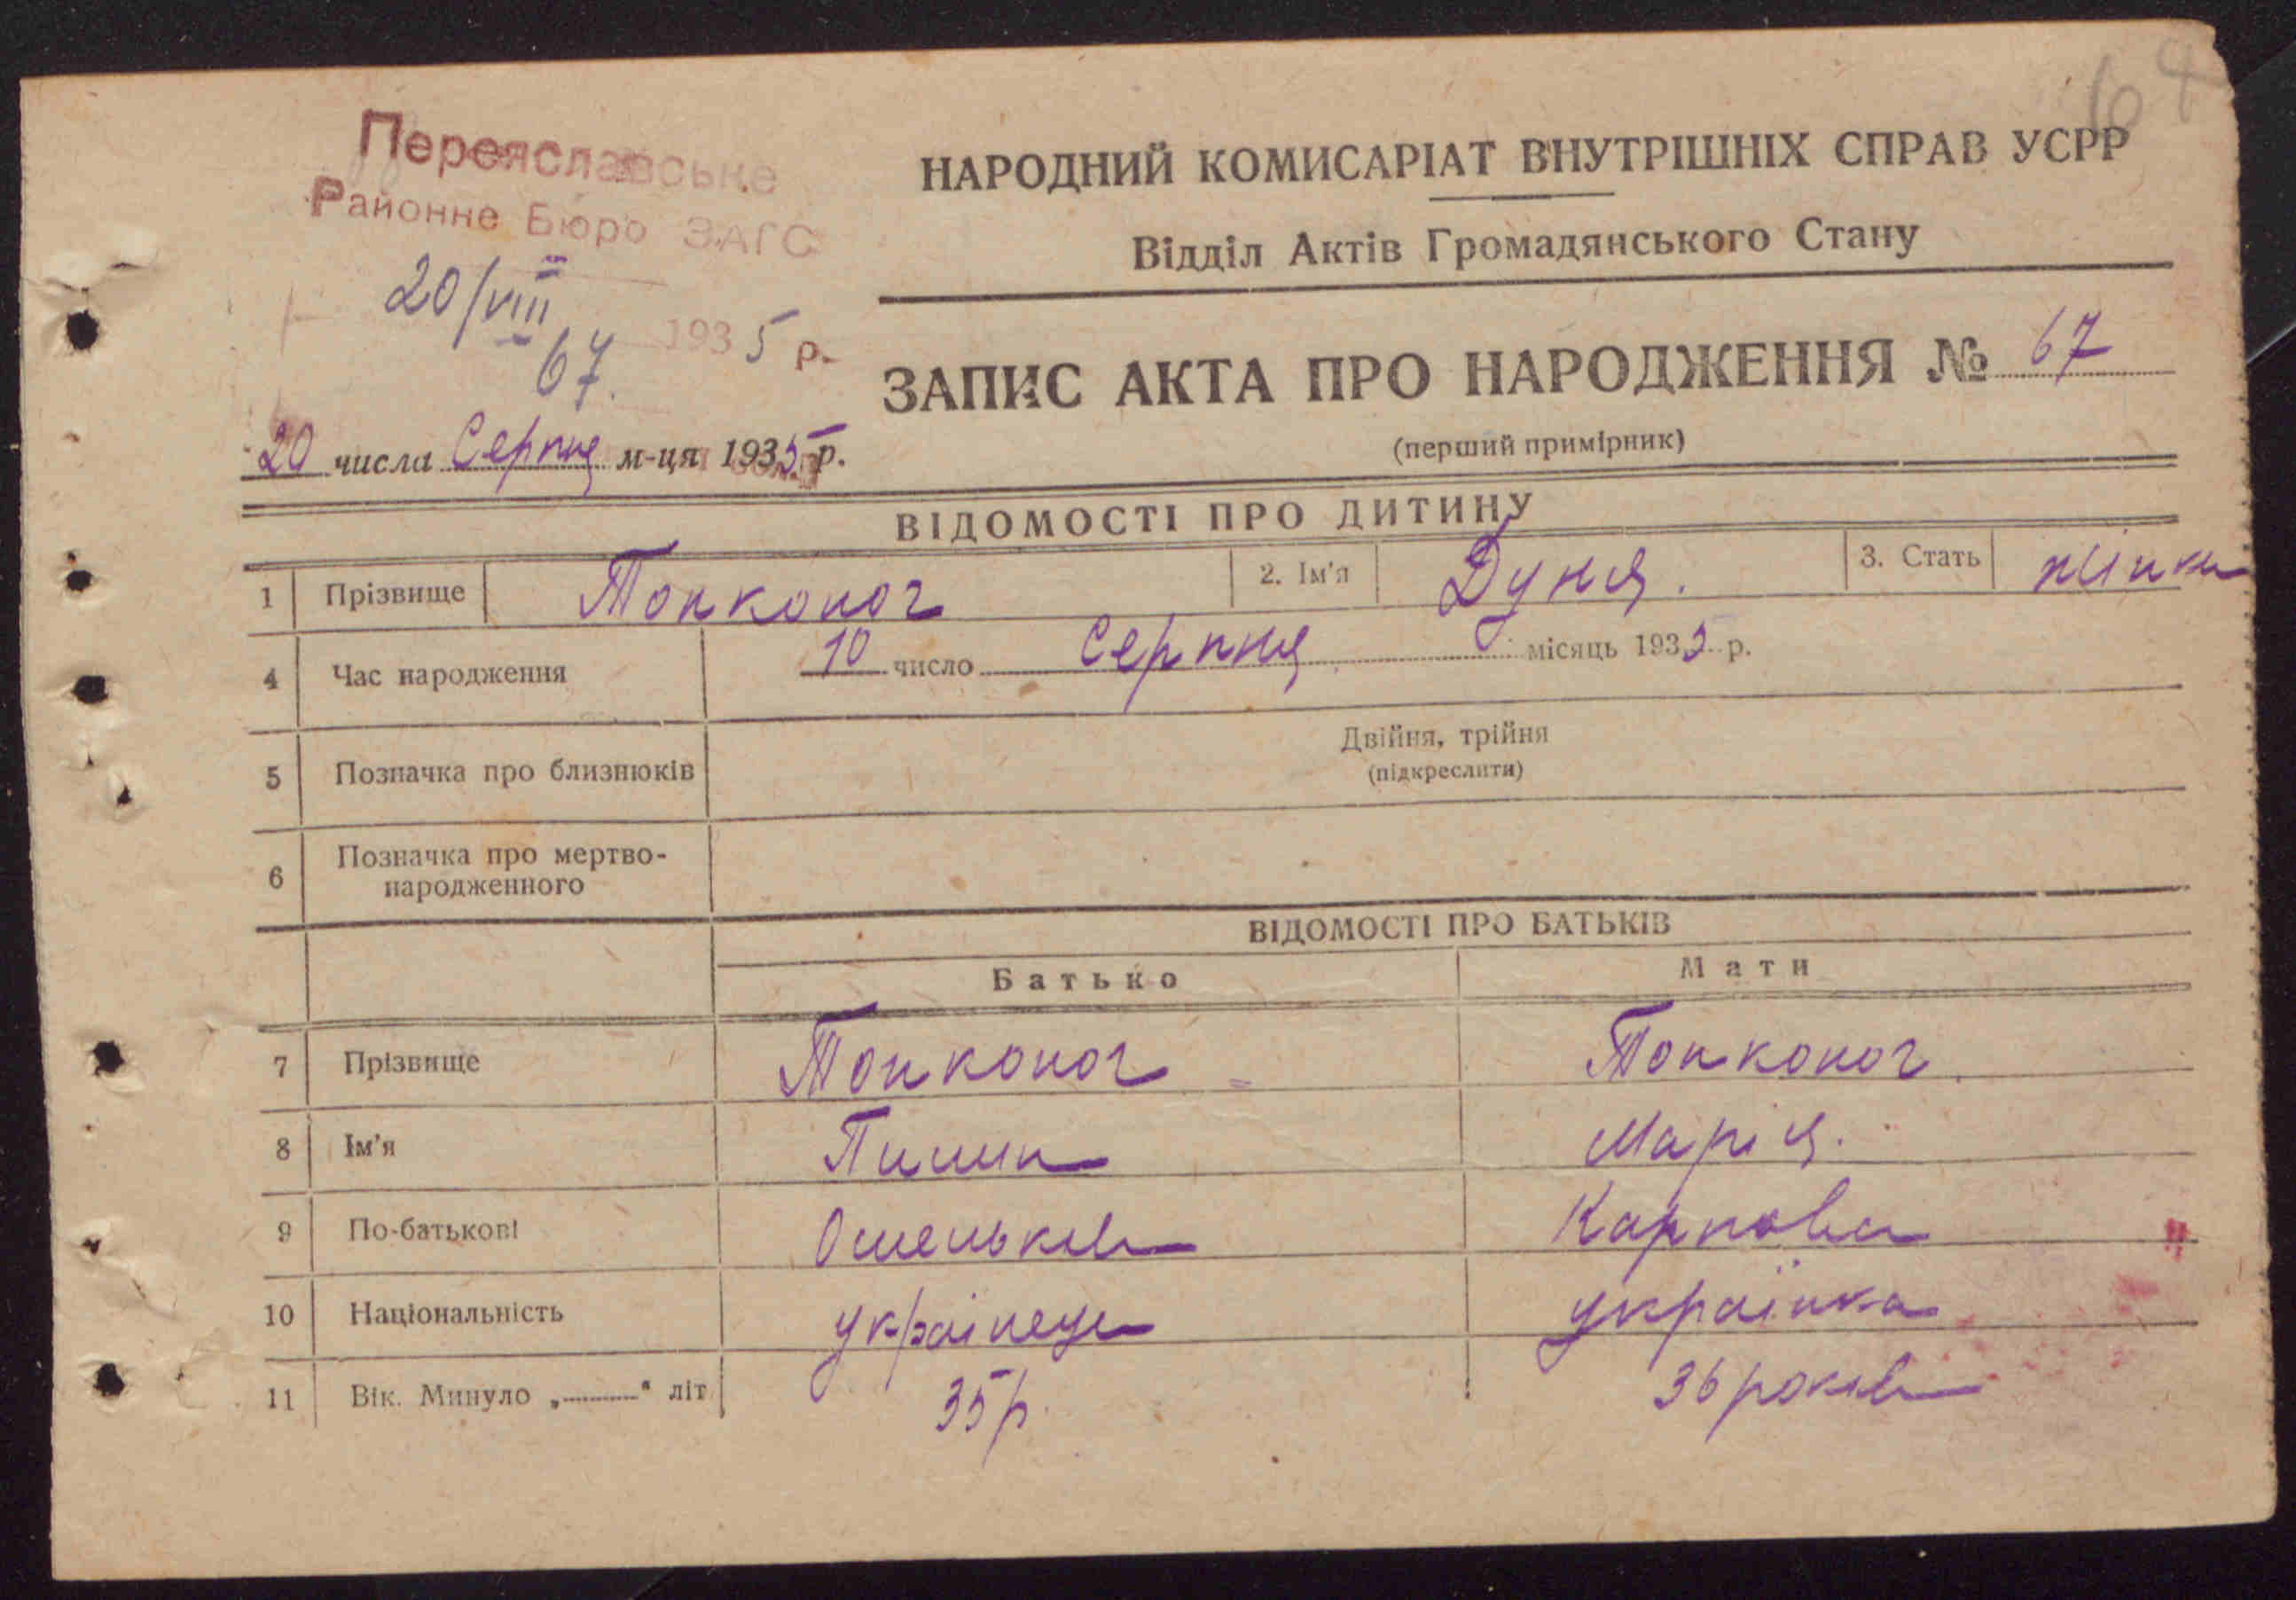 64
Переяславське
Районне Бюро ЗАГС
20/VIII 1935 р.
67.
НАРОДНИЙ КОМИСАРІАТ ВНУТРІШНІХ СПРАВ УСРР
Відділ Актів Громадянського Стану
ЗАПИС АКТА ПРО НАРОДЖЕННЯ № 67
(перший примірник)
20 числа Серпня м-ця 1935 р.
ВІДОМОСТІ ПРО ДИТИНУ
1 Прізвище Тонконог 2. Ім'я Дуня. 3. Стать жінка
4 Час народження 10 число Серпня місяць 1935 р.
5 Позначка про близнюків Двійня, трійня
(підкреслити)
6 Позначка про мертво-
народженного
ВІДОМОСТІ ПРО БАТЬКІВ
Батько Мати
7 Прізвище Тонконог Тонконог.
8 Ім'я Пилип Марія.
9 По-батькові Карпова
10 Національність українець українка
11 Вік. Минуло „ “ літ 35 р. 36 років